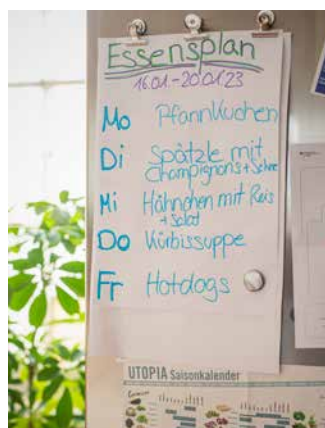 Essensplan
16.01.-20.01.23
Mo Pfannkuchen
Di Spätzle mit
Champignons + Sahne
Mi Hähnchen mit Reis
+ Salat
Do Kürbissuppe
Fr Hotdogs
UTOPIA Saisonkalender